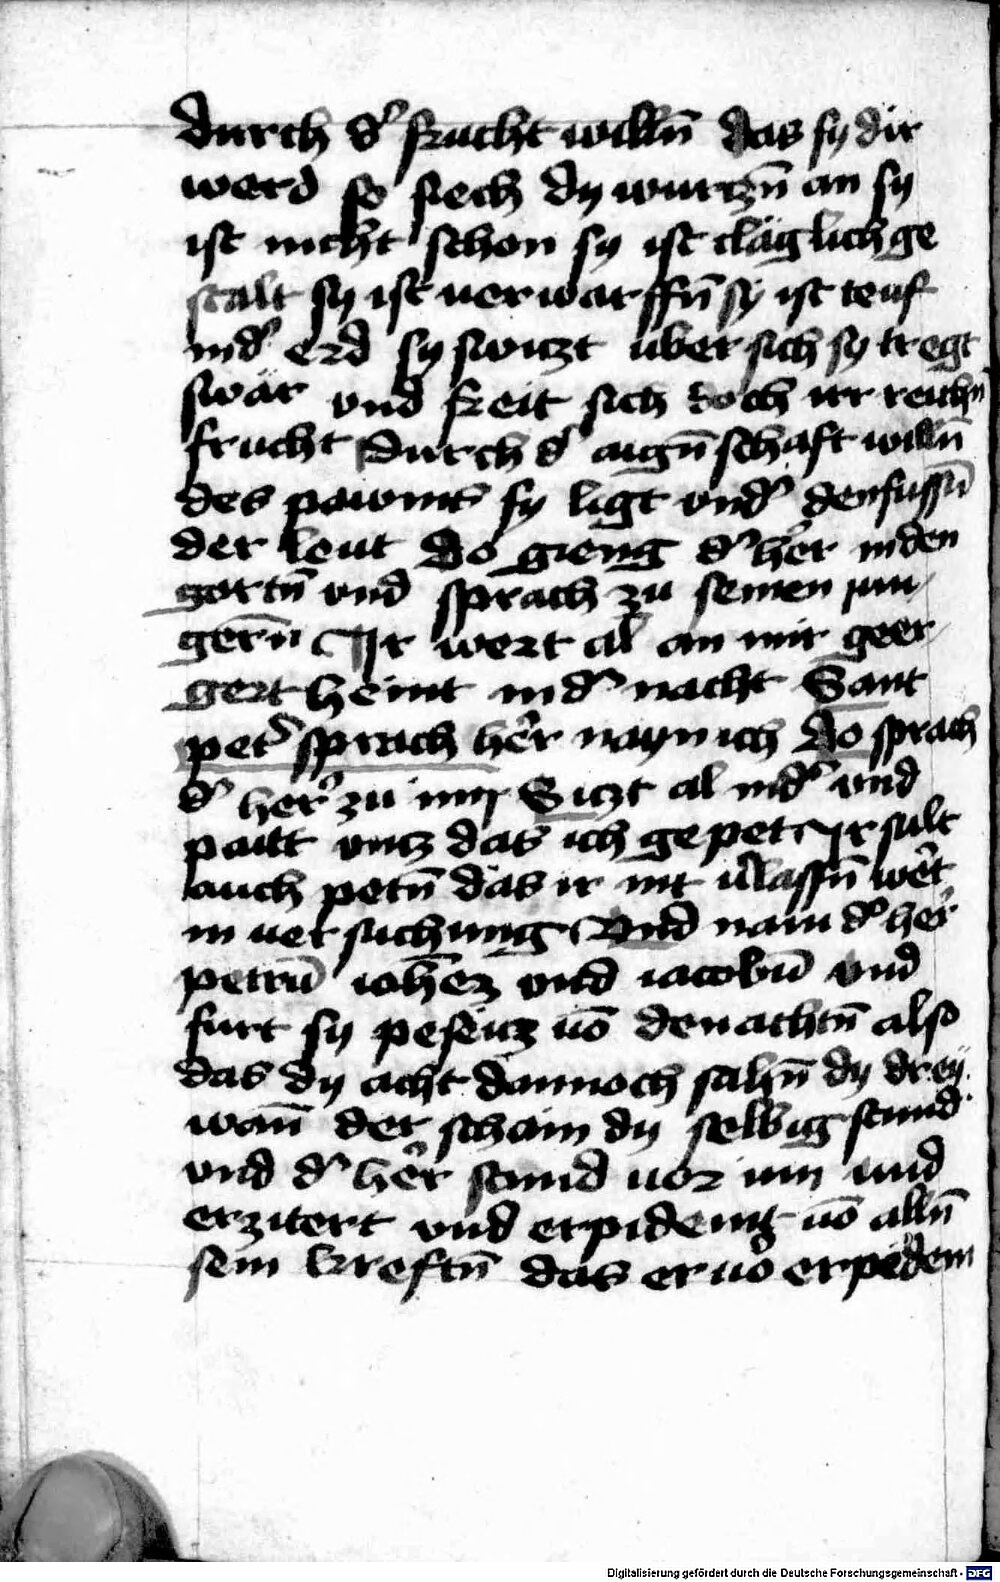 durch d' frucht willn̄ das sy dir
werd so siech dy wurtzn̄ an sy
ist nicht schon sy ist cläglich ge
stalt sy ist uerwarffn̄ sy ist teuf
ind' erd sy switzt uber sich sy tregt
swär vnd freit sich doch irr reichn̄
frucht durch d' aign̄schaft willn̄
des pawms sy ligt vnd' den fussn̄
der leut Do gieng d' her in den
gartn̄ vnd sprach zu seinen jun
gern̄ Ir wert al an mir geer
gert heint ind' nacht Sant
pet' sprach her nayn ich Do sprach
d' her zu im Sitzt al nid' vnd
paitt vntz das ich gepet Ir sult
auch petn̄ das ir nit v'lassn̄ wert
in uersuchung Vnd nam d' her
petrū ioh̄ez vnd iacobū vnd
furt sy peseitz uō den achtn̄ also
das dy acht dannoch sahn̄ dy drey
wan̄ der schain dy selbig stund
vnd d' her stund uor im vnd
erzitert vnd erpidemt uō alln̄
sein kreftn̄ das er uō erpidem